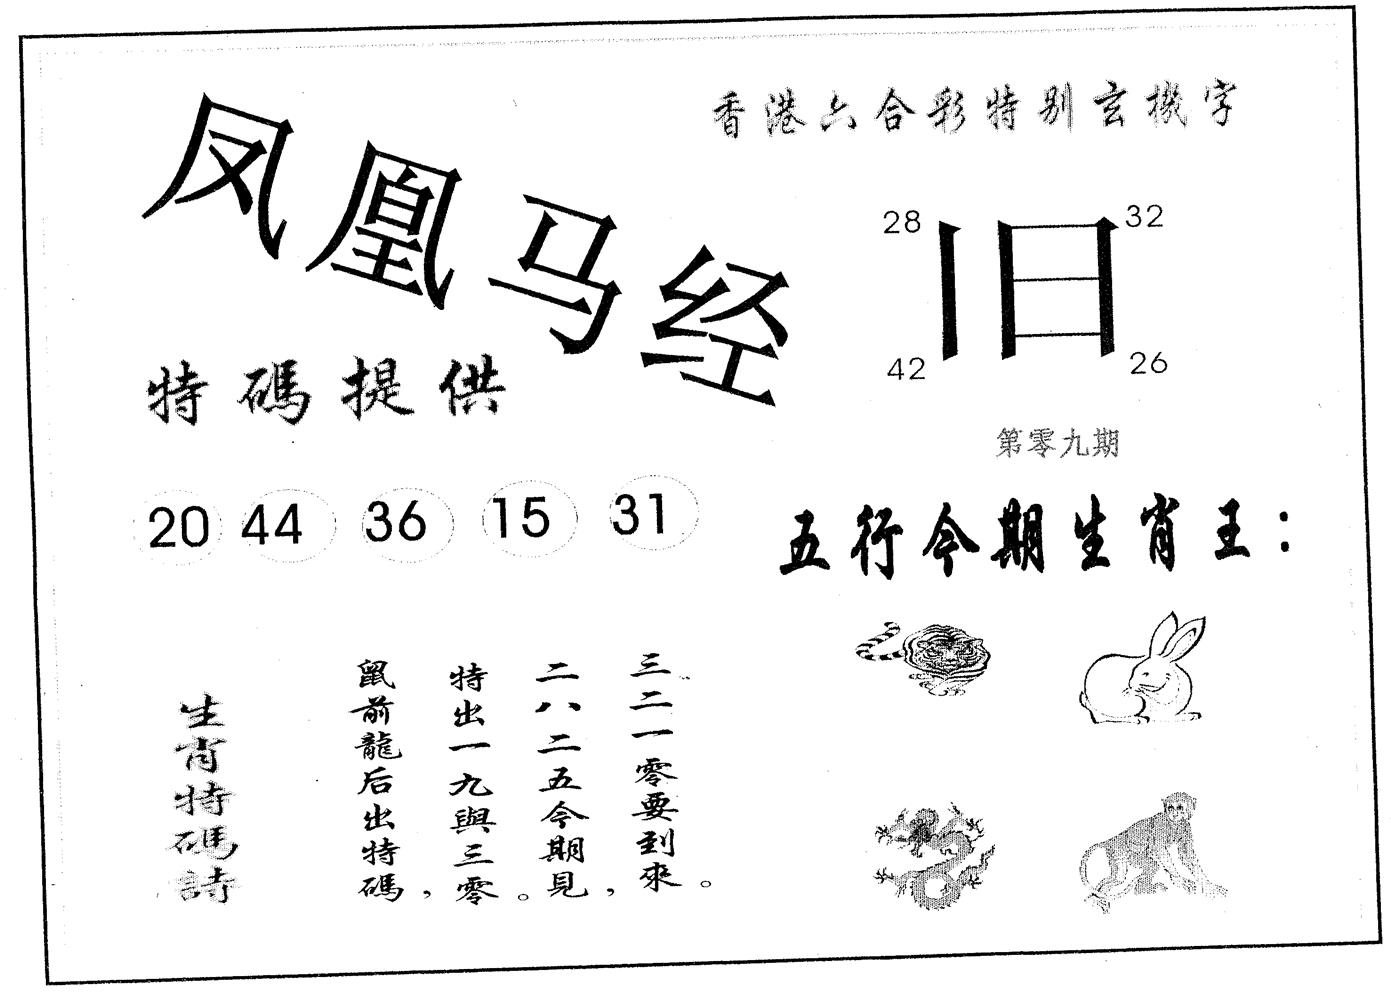 凤凰马经
香港六合彩特别玄機字
28 32
旧
42 26
第零九期
特碼提供
20 44 36 15 31
五行今期生肖王：
生肖特碼詩
鼠前龍后出特碼，
特出一九與三零。
二八二五今期見，
三二一零要到來。